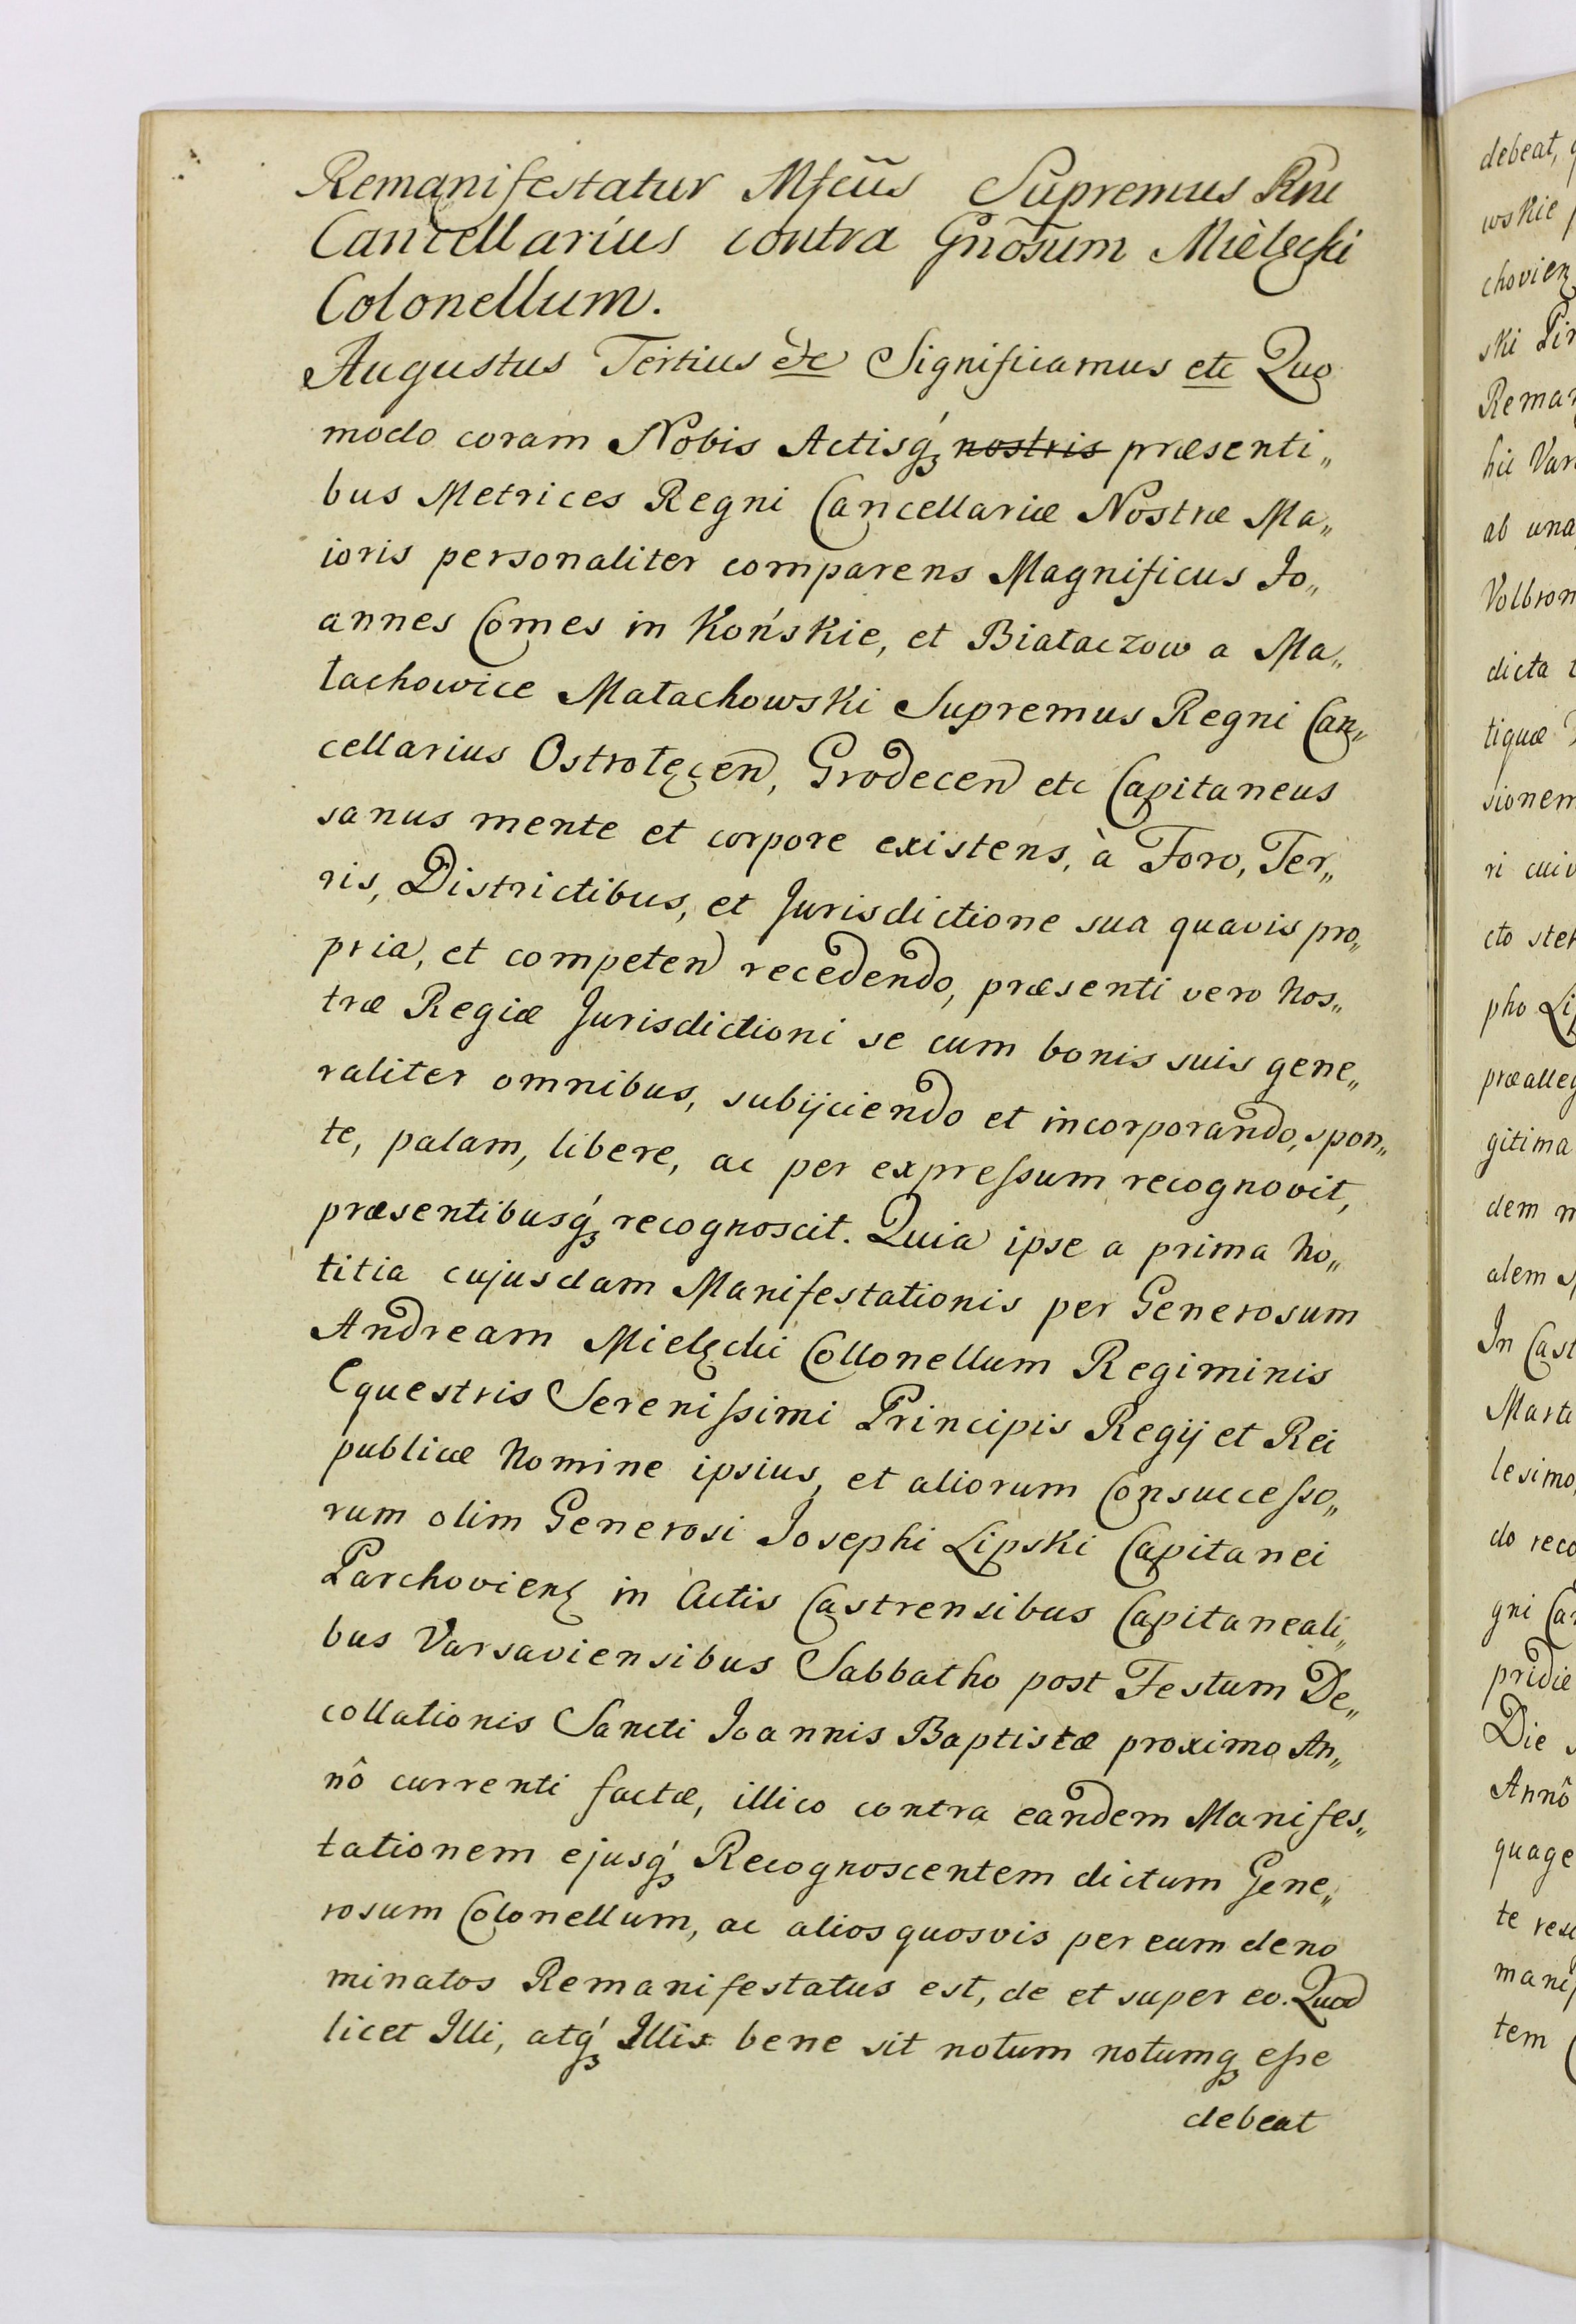 Remanifestatur Mfcūs Supremus Rni
Cancellarius contra Gnōsum Mielęcki
Colonellum.
Augustus Tertius etc Significamus etc Quo
modo coram Nobis Actisq́ꝫ nostris præsenti„
bus Metrices Regni Cancellariæ Nostræ Ma„
ioris personaliter comparens Magnificus Jo„
annes Comes in Końskie, et Białaczow a Ma„
łachowice Małachowski Supremus Regni Can„
cellarius Ostrołęcen̄, Grodecen̄ etc Capitaneus
sanus mente et corpore existens, à Foro, Ter„
ris, Districtibus, et Jurisdictione sua quavis pro„
pria, et competen̄ recedendo, præsenti vero Nos„
træ Regiæ Jurisdictioni se cum bonis suis gene„
raliter omnibus, subijciendo et incorporando, spon„
te, palam, libere, ac per expreſsum recognovit,
præsentibusq́ꝫ recognoscit. Quia ipse a prima No„
titia cujusdam Manifestationis per Generosum
Andream Mielęcki Collonellum Regiminis
Equestris Sereniſsimi Principis Regij et Rei
publicæ Nomine ipsius, et aliorum Consucceſso„
rum olim Generosi Josephi Lipski Capitanei
Parchovienȝ in Actis Castrensibus Capitaneali„
bus Varsaviensibus Sabbatho post Festum De„
collationis Sancti Joannis Baptistæ proximo An„
nô currenti factæ, illico contra eandem Manifes„
tationem ejusq́ꝫ Recognoscentem dictum Gene„
rosum Colonellum, ac alios quosvis per eum deno
minatos Remanifestatus est, de et super eo. Quod
licet Illi, atq́ꝫ Illis bene sit notum notumqꝫ eſse
debeat
debeat,
wskie
chovienȝ
ski
Reman
hic Var
ab una
Volbrom
dicta
tiquæ
sionem
ri cuiv
cto ster
pho Lip
præalleg
gitima
dem m
alem
In Cast
Marti
lesimo,
do reco
gni Can
pridie
Die
Annô
quage
te
manif
tem